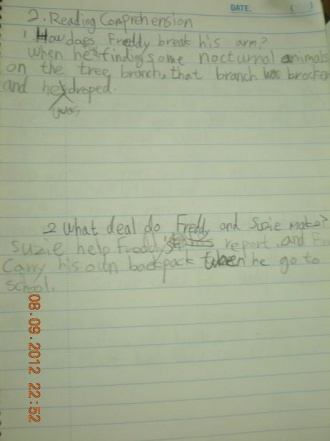 DATE. ( )
2. Reading Comprehension
1 How does Freddy break his arm?
When he finding some nocturnal animals
on the tree branch, that branch was brocken
and he droped.
2 What deal do Freddy and Suzie make?
Suzie help Freddy's report, and F
Carry his own backpack when he go to
School.
08.09.2012 22:52